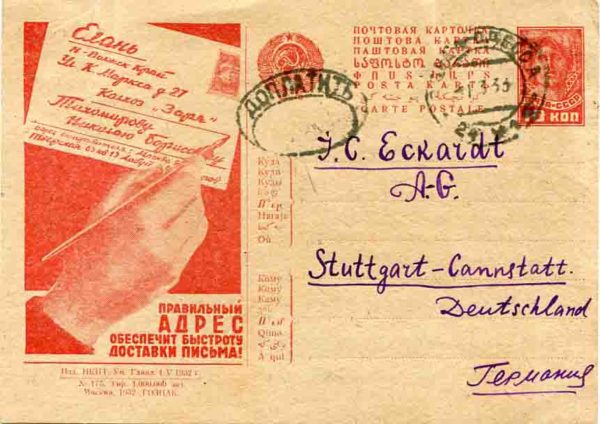 Елань
Н-Волжск. край
Ул. К. Маркса д 27
Колхоз „Заря"
Тихомирову
Николаю Борисовичу
ПРАВИЛЬНЫЙ
АДРЕС
ОБЕСПЕЧИТ БЫСТРОТУ
ДОСТАВКИ ПИСЬМА!
Изд. НКПТ. Уп. Главл. 1/V 1932 г.
№ 175. Тир. 1.000.000 экз.
Москва, 1932. ГОЗНАК.
ПОЧТОВАЯ КАРТОЧКА
ПОШТОВА КАРТКА
ПАШТОВАЯ КАРТКА
POSTA KAR
CARTE POSTALE
СССР
КОП
ДОПЛАТИТЬ
ОДЕССА
Куда
Куды
Haraja
Où
Кому
Каму
Кому
Qimə
A qui
J. C. Eckardt
A-G.
Stuttgart-Cannstatt.
Deutschland
Германия